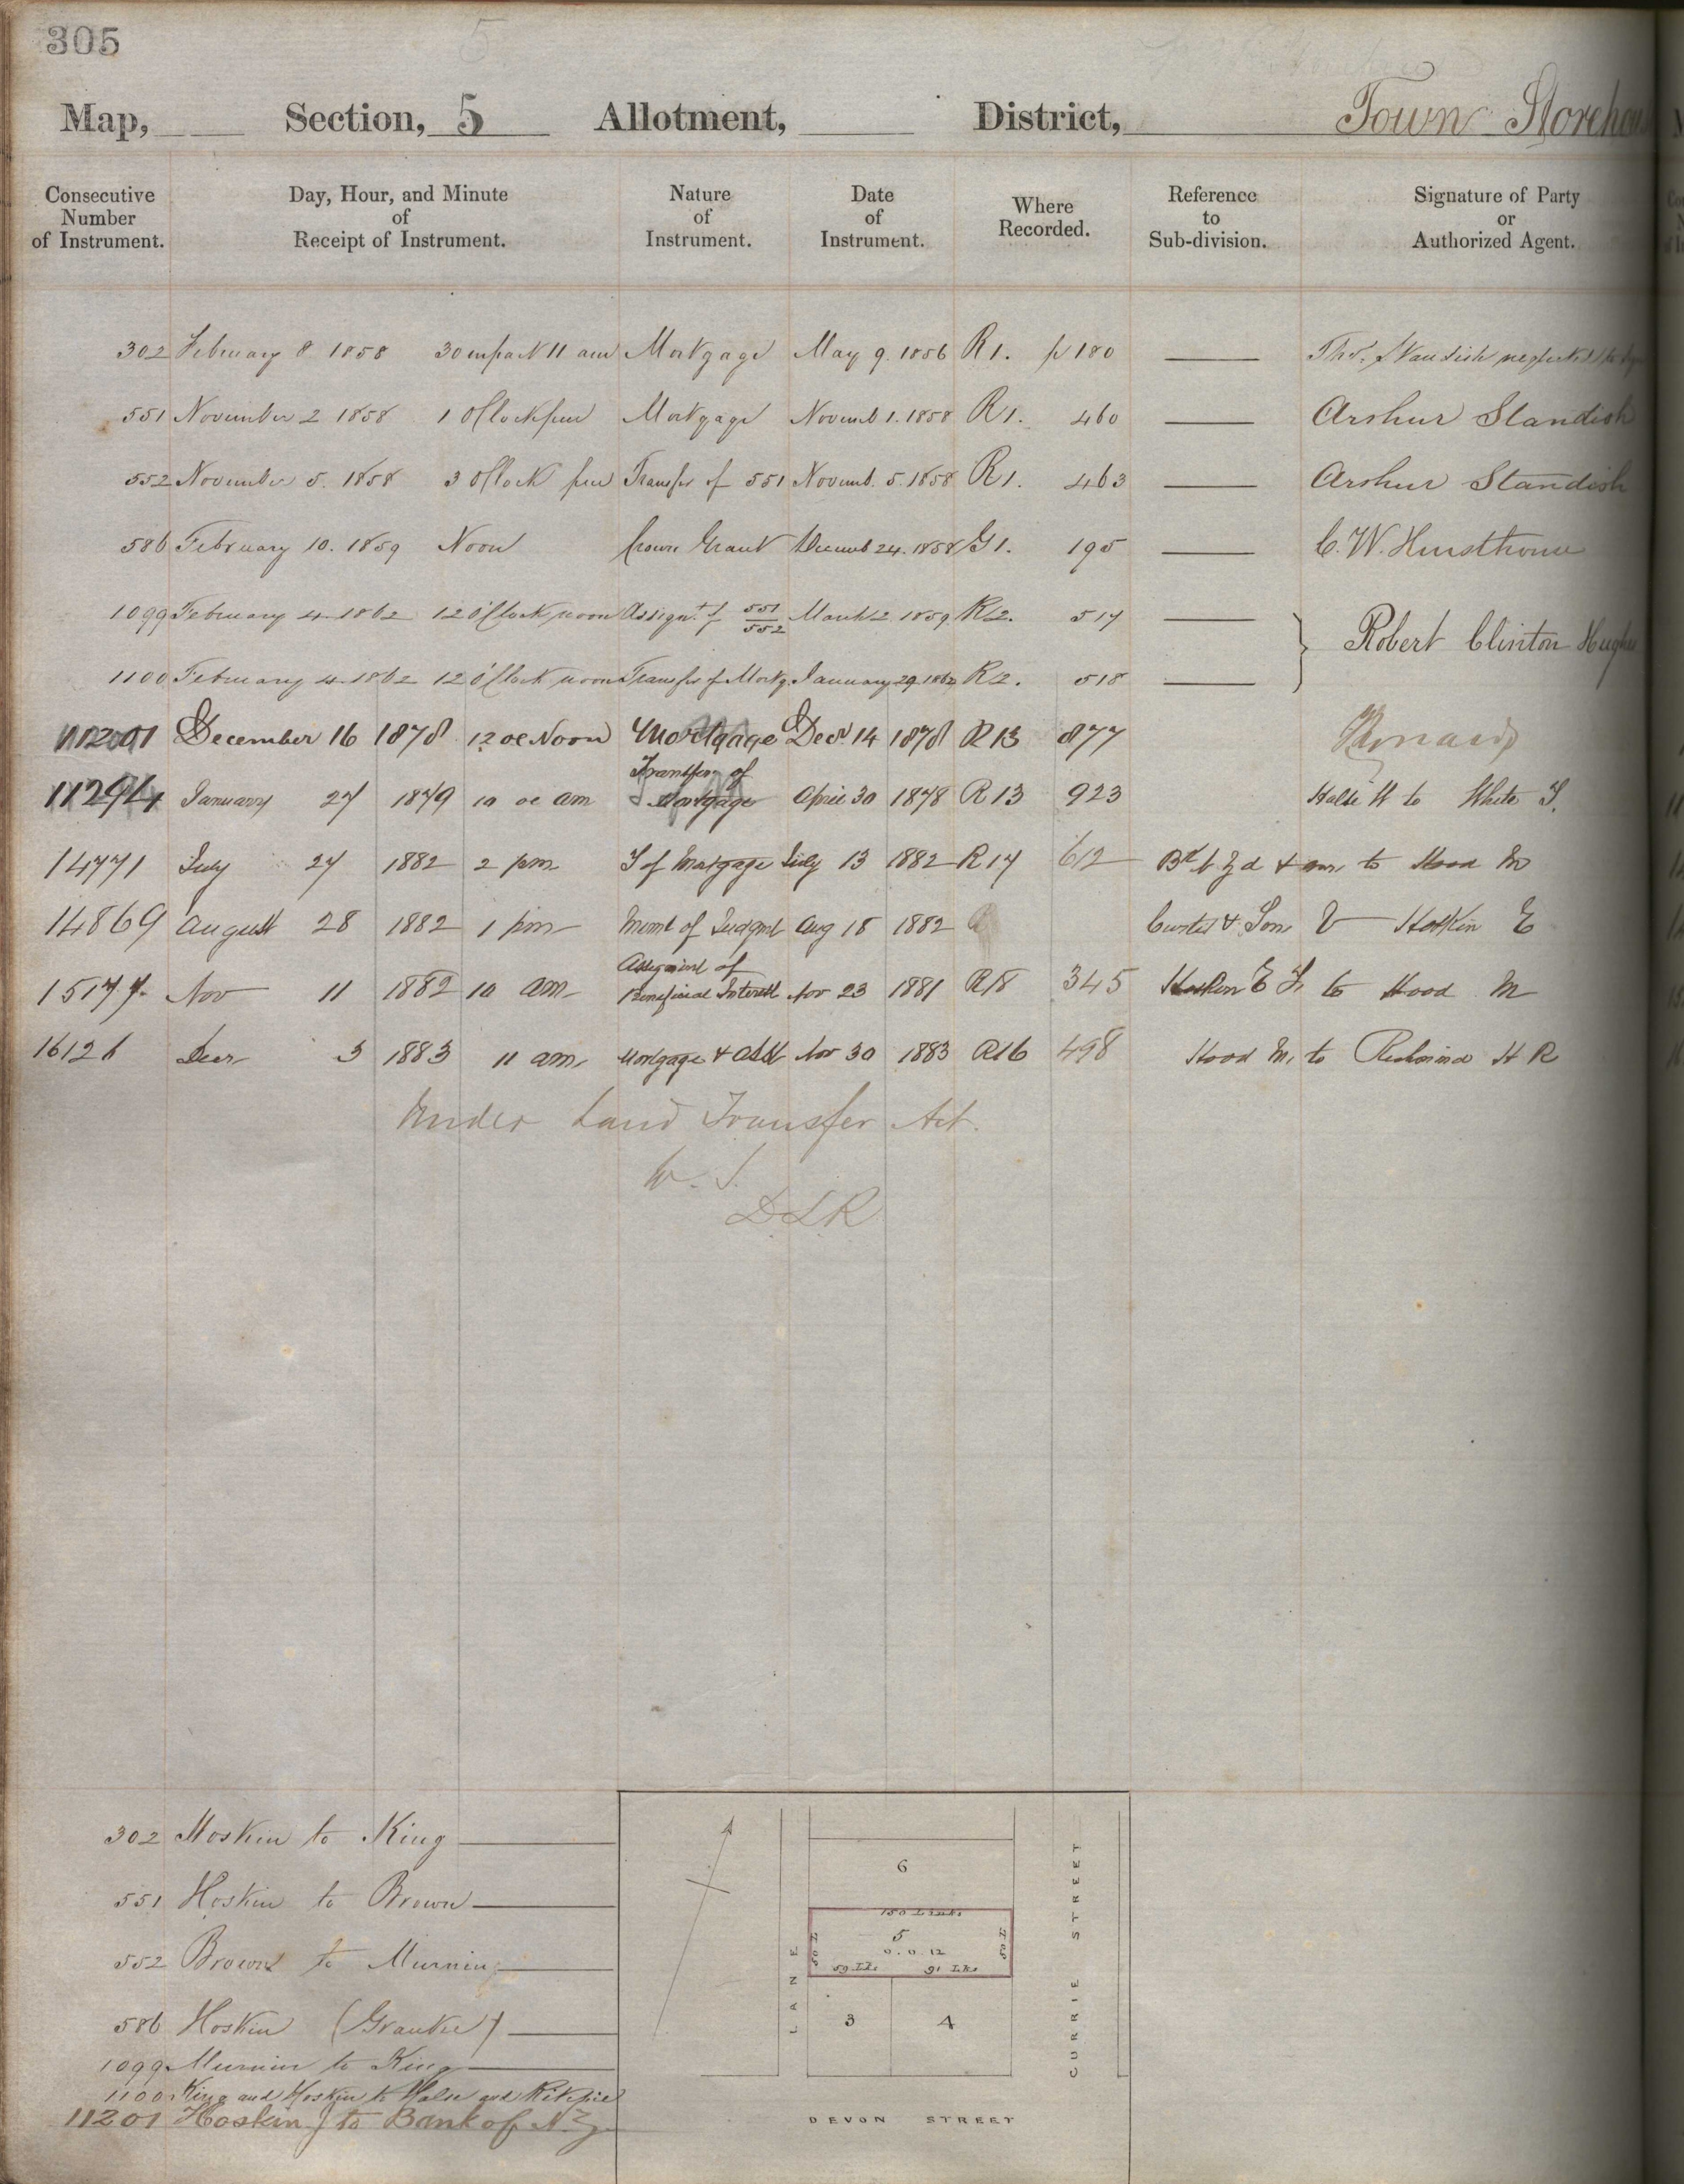 305
Map, Section, 5 Allotment, District, Town Storehou
Consecutive Number of Instrument.
Day, Hour, and Minute of Receipt of Instrument.
Nature of Instrument.
Date of Instrument.
Where Recorded.
Reference to Sub-division.
Signature of Party or Authorized Agent.
302 February 8 1858 30 m past 11 am Mortgage May 9. 1856 R 1. p 180 Thos. Standish neglected to
551 November 2 1858 1 O'Clock pm Mortgage Novemb 1. 1858 R 1. 460 Arthur Standish
552 November 5. 1858 3 O'Clock pm Transfer of 551 Novemb. 5. 1858 R 1. 463 Arthur Standish
586 February 10. 1859 Noon Crown Grant Decemb 24. 1858 G 1. 195 C. W. Hursthouse
1099 February 4 1862 12 O'Clock noon Assignt. of 551 552 March 2 1859. R 2. 517
Robert Clinton Hughes
1100 February 4 1862 12 O'Clock noon Transfer of Mortg. January 29 1862 R 2. 518
11201 December 16 1878 12 oc Noon Mortgage Decr. 14 1878 R 13 877
11294 January 27 1879 10 oc am Transfer of Mortgage April 30 1878 R 13 923 Halse W to White J.
14771 July 27 1882 2 pm T of Mortgage July 13 1882 R 17 612 Bk of N Z d & anr to Hood M
14869 August 28 1882 1 pm Meml of Judgmt Aug 18 1882 Curtis & Son V Hoskin E
15177. Nov 11 1882 10 am Assignmt of Beneficial Interest Nov 23 1881 R 18 345 Hoskin E J. to Hood M
16126 Decr 3 1883 11 am Mortgage & Asst Nov 30 1883 R16 498 Hood M, to Richmond H R
Under Land Transfer Act.
W. S.
D L R
302 Hoskin to King
551 Hoskin to Brown
552 Brown to Murning
586 Hoskin (Grantee)
1099 Murnin to King
1100 King and Hoskin to Halse and Ritchie
11201 Hoskin J to Bank of N.Z.
6
150 Links
5
0. 0. 12
50 L
50 L
59 Lks
91 Lks
3
4
LANE
CURRIE STREET
DEVON STREET